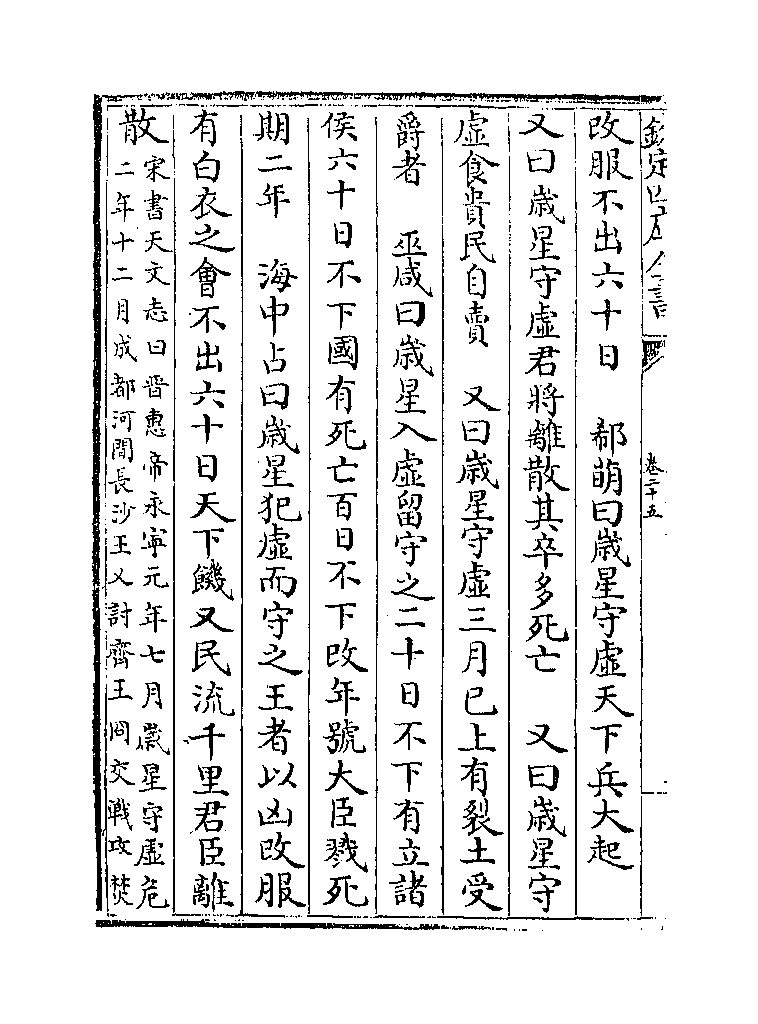 欽定四庫全書
卷二十五
改服不出六十日　郗萌曰歳星守虛天下兵大起
又曰歳星守虛君將離散其卒多死亡　又曰歳星守
虛食貴民自賣　又曰歳星守虛三月已上有裂土受
爵者　巫咸曰歳星入虛留守之二十日不下有立諸
侯六十日不下國有死亡百日不下改年號大臣戮死
期二年　海中占曰歳星犯虛而守之王者以凶改服
有白衣之會不出六十日天下饑又民流千里君臣離
散宋書天文志曰晉惠帝永寧元年七月歳星守虛危
二年十二月成都河間長沙王乂討齊王冏交戰攻焚